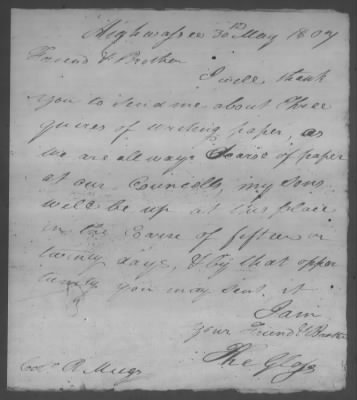 Highwassee 30th May 1807
Friend & Brother
I will thank
you to send me about three
quires of writing paper, as
we are allways Scarse of paper
at our Councells, my Sons
will be up at this place
in the Coarse of fifteen or
twenty days, & by that oppor
tunity you may sent it
I am
your Friend & Brother
The Glass
Colo. R. Meigs